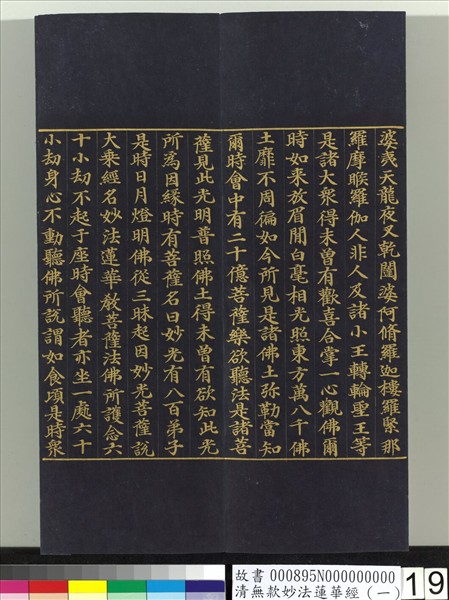 婆夷天龍夜叉乾闥婆阿脩羅迦樓羅緊那
羅摩睺羅伽人非人及諸小王轉輪聖王等
是諸大衆得未曾有歡喜合掌一心觀佛爾
時如來放眉間白毫相光照東方萬八千佛
土靡不周徧如今所見是諸佛土弥勒當知
爾時會中有二十億菩薩樂欲聽法是諸菩
薩見此光明普照佛土得未曾有欲知此光
所為因緣時有菩薩名曰妙光有八百弟子
是時日月燈明佛從三昧起因妙光菩薩說
大乘經名妙法蓮華教菩薩法佛所護念六
十小劫不起于座時會聽者亦坐一處六十
小劫身心不動聽佛所說謂如食頃是時衆
故書 000895N000000000
清無款妙法蓮華經 (一)
19